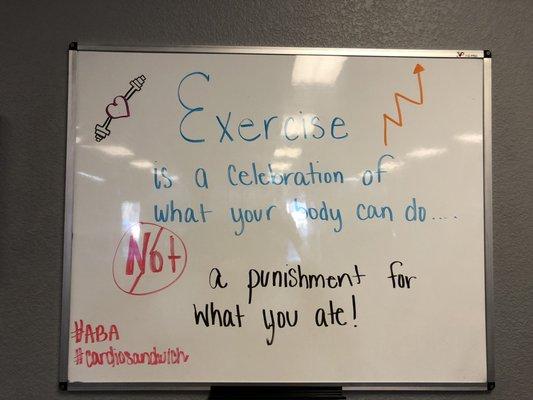 Exercise
is a celebration of
what your body can do....
Not
a punishment for
what you ate!
#ABA
#cardiosandwich